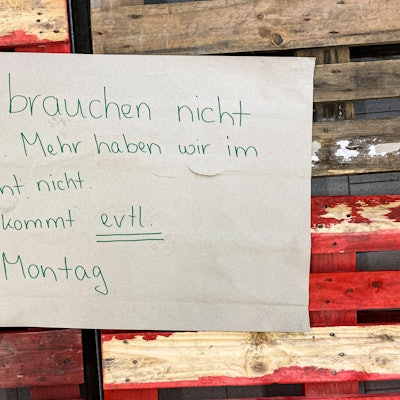 brauchen nicht
. Mehr haben wir im
nt nicht.
kommt evtl.
Montag